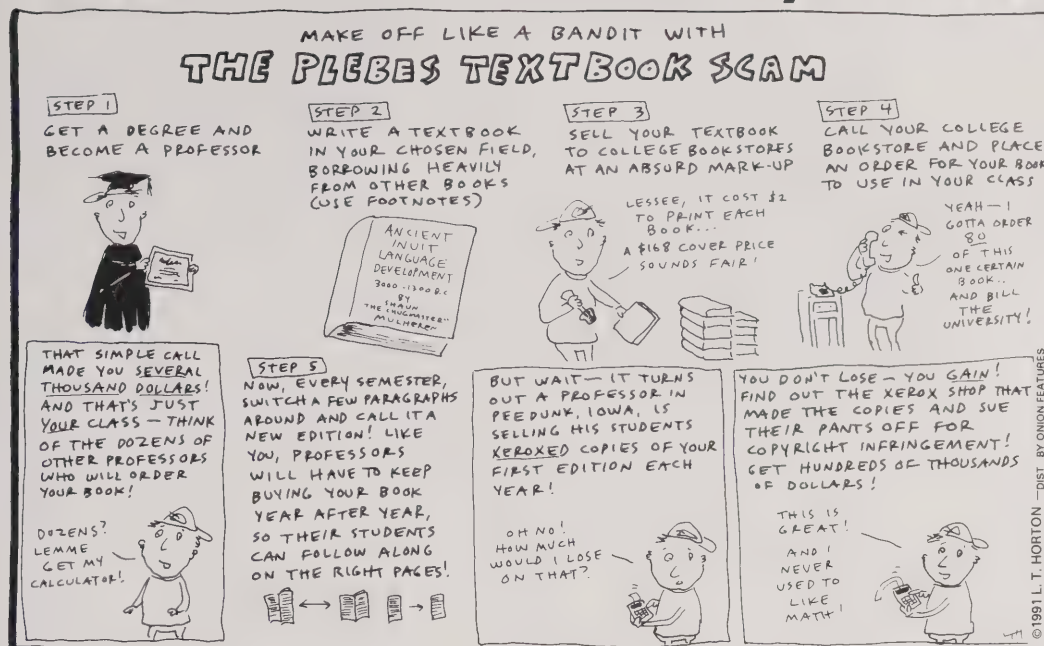 MAKE OFF LIKE A BANDIT WITH
THE PLEBES TEXTBOOK SCAM
STEP 1
GET A DEGREE AND
BECOME A PROFESSOR
STEP 2
WRITE A TEXTBOOK
IN YOUR CHOSEN FIELD,
BORROWING HEAVILY
FROM OTHER BOOKS
(USE FOOTNOTES)
ANCIENT
INUIT
LANGUAGE
DEVELOPMENT
3000-1200 B.C
BY
SHAUN
"THE CHUGMASTER"
MULHEREN
STEP 3
SELL YOUR TEXTBOOK
TO COLLEGE BOOKSTORES
AT AN ABSURD MARK-UP
LESSEE, IT COST $2
TO PRINT EACH
BOOK...
A $168 COVER PRICE
SOUNDS FAIR!
STEP 4
CALL YOUR COLLEGE
BOOKSTORE AND PLACE
AN ORDER FOR YOUR BOOK
TO USE IN YOUR CLASS
YEAH— I
GOTTA ORDER
80
OF THIS
ONE CERTAIN
BOOK..
AND BILL
THE
UNIVERSITY!
THAT SIMPLE CALL
MADE YOU SEVERAL
THOUSAND DOLLARS!
AND THAT'S JUST
YOUR CLASS — THINK
OF THE DOZENS OF
OTHER PROFESSORS
WHO WILL ORDER
YOUR BOOK!
DOZENS?
LEMME
GET MY
CALCULATOR!
STEP 5
NOW, EVERY SEMESTER,
SWITCH A FEW PARAGRAPHS
AROUND AND CALL IT A
NEW EDITION! LIKE
YOU, PROFESSORS
WILL HAVE TO KEEP
BUYING YOUR BOOK
YEAR AFTER YEAR,
SO THEIR STUDENTS
CAN FOLLOW ALONG
ON THE RIGHT PAGES!
BUT WAIT— IT TURNS
OUT A PROFESSOR IN
PEEDUNK, IOWA, IS
SELLING HIS STUDENTS
XEROXED COPIES OF YOUR
FIRST EDITION EACH
YEAR!
OH NO!
HOW MUCH
WOULD I LOSE
ON THAT?
YOU DON'T LOSE — YOU GAIN!
FIND OUT THE XEROX SHOP THAT
MADE THE COPIES AND SUE
THEIR PANTS OFF FOR
COPYRIGHT INFRINGEMENT!
GET HUNDREDS OF THOUSANDS
OF DOLLARS!
THIS IS
GREAT!
AND I
NEVER
USED TO
LIKE
MATH!
©1991 L.T. HORTON —DIST BY ONION FEATURES